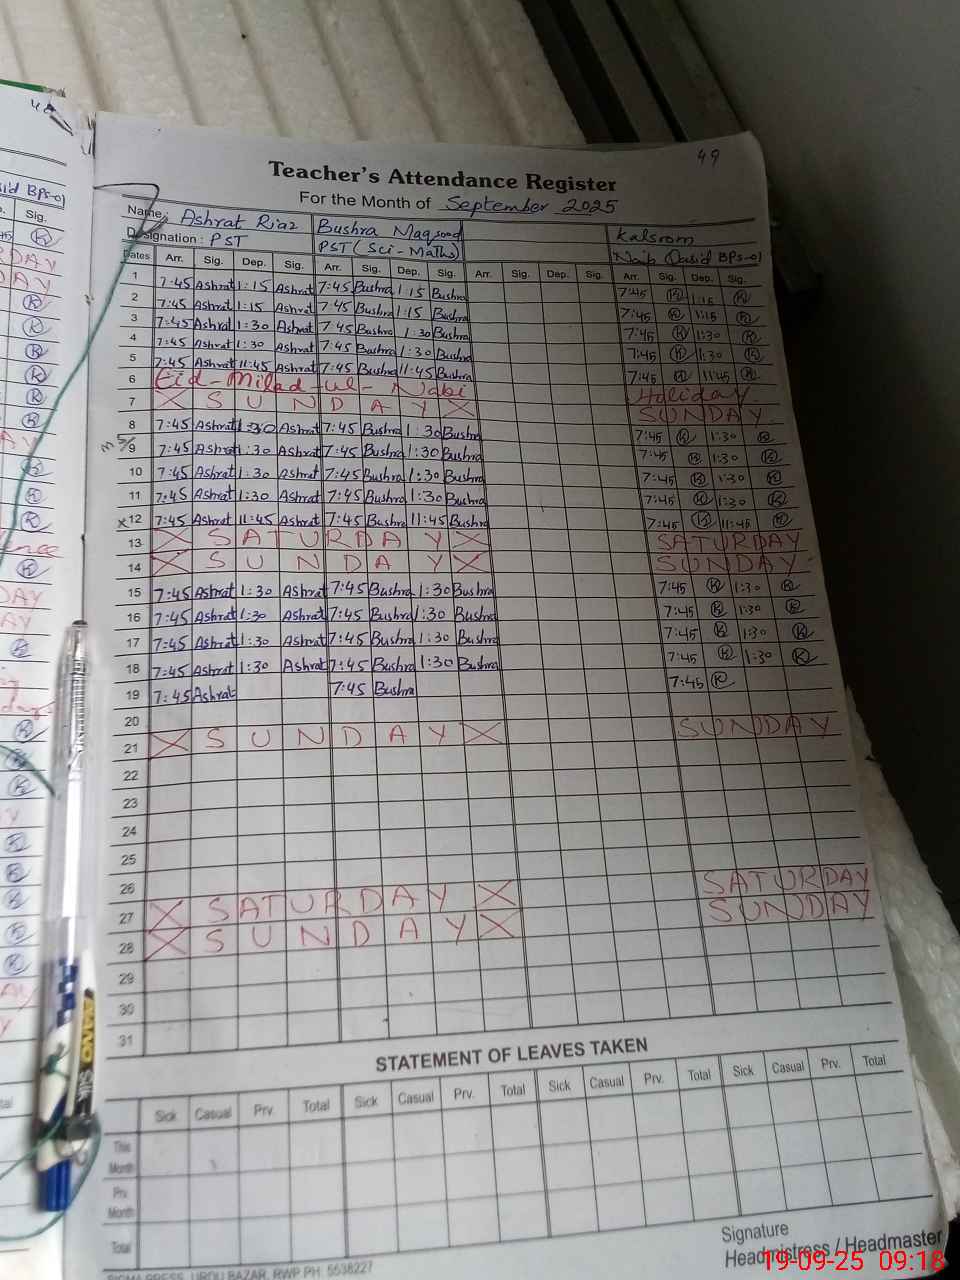 49
Teacher's Attendance Register
For the Month of September 2025
Name: Ashrat Riaz Bushra Maqsood Kalsrom
Designation: PST PST (Sci-Maths) Naib Qasid BPS-01
Dates Arr. Sig. Dep. Sig. Arr. Sig. Dep. Sig. Arr. Sig. Dep. Sig. Arr. Sig. Dep. Sig.
1 7:45 Ashrat 1:15 Ashrat 7:45 Bushra 1:15 Bushra 7:45 K 1:15 K
2 7:45 Ashrat 1:15 Ashrat 7:45 Bushra 1:15 Bushra 7:45 K 1:15 K
3 7:45 Ashrat 1:30 Ashrat 7:45 Bushra 1:30 Bushra 7:45 K 1:30 K
4 7:45 Ashrat 1:30 Ashrat 7:45 Bushra 1:30 Bushra 7:45 K 1:30 K
5 7:45 Ashrat 11:45 Ashrat 7:45 Bushra 11:45 Bushra 7:45 K 11:45 K
6 Eid-Milad-ul-Nabi Holiday
7 X SUNDAY X SUNDAY
8 7:45 Ashrat 1:30 Ashrat 7:45 Bushra 1:30 Bushra 7:45 K 1:30 K
9 7:45 Ashrat 1:30 Ashrat 7:45 Bushra 1:30 Bushra 7:45 K 1:30 K
10 7:45 Ashrat 1:30 Ashrat 7:45 Bushra 1:30 Bushra 7:45 K 1:30 K
11 7:45 Ashrat 1:30 Ashrat 7:45 Bushra 1:30 Bushra 7:45 K 1:30 K
x 12 7:45 Ashrat 11:45 Ashrat 7:45 Bushra 11:45 Bushra 7:45 K 11:45 K
13 X SATURDAY X SATURDAY
14 X SUNDAY X SUNDAY
15 7:45 Ashrat 1:30 Ashrat 7:45 Bushra 1:30 Bushra 7:45 K 1:30 K
16 7:45 Ashrat 1:30 Ashrat 7:45 Bushra 1:30 Bushra 7:45 K 1:30 K
17 7:45 Ashrat 1:30 Ashrat 7:45 Bushra 1:30 Bushra 7:45 K 1:30 K
18 7:45 Ashrat 1:30 Ashrat 7:45 Bushra 1:30 Bushra 7:45 K 1:30 K
19 7:45 Ashrat 7:45 Bushra 7:45 K
20
21 X SUNDAY X SUNDAY
22
23
24
25
26
27 X SATURDAY X SATURDAY
28 X SUNDAY X SUNDAY
29
30
31
STATEMENT OF LEAVES TAKEN
Sick Casual Prv. Total Sick Casual Prv. Total Sick Casual Prv. Total Sick Casual Prv. Total
This Month
Prv. Month
Total
Signature
Headmistress / Headmaster
SIGMA PRESS, URDU BAZAR, RWP PH: 5538227
19-09-25 09:18